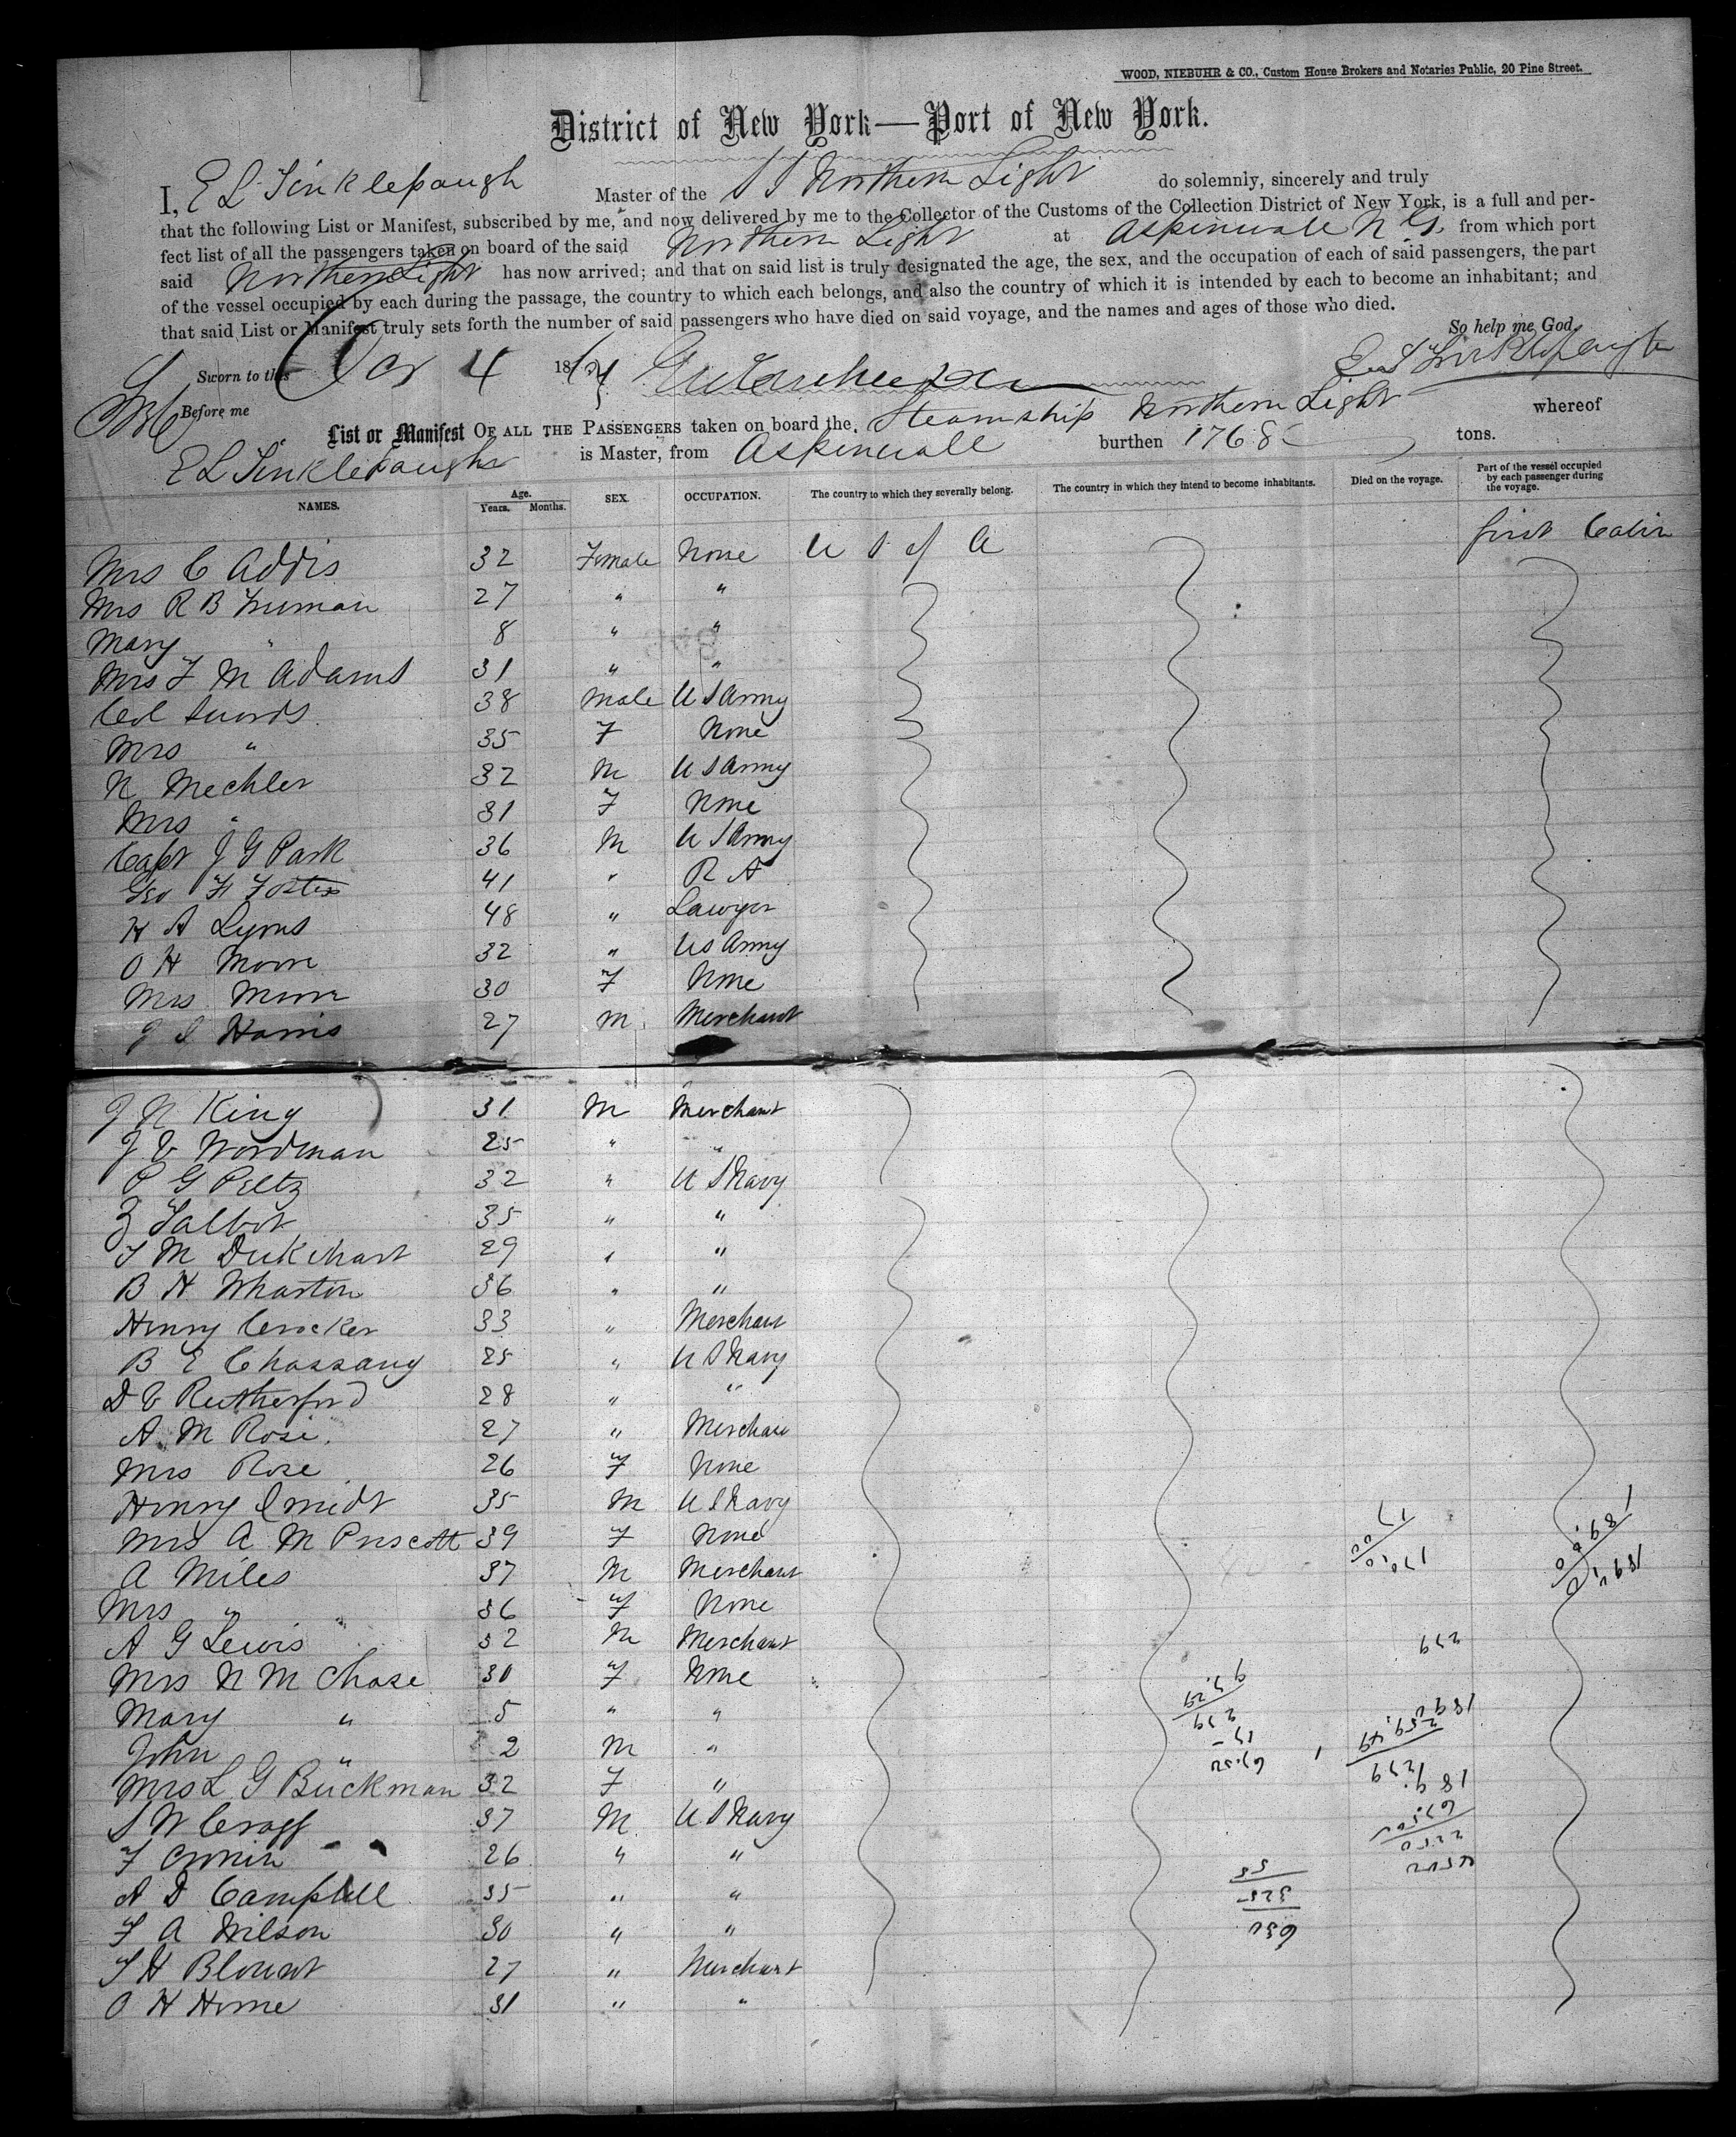 WOOD, NIEBUHR & CO., Custom House Brokers and Notaries Public, 20 Pine Street.
District of New York—Port of New York.
I, E L Tinklepaugh Master of the S S Northern Light do solemnly, sincerely and truly
that the following List or Manifest, subscribed by me, and now delivered by me to the Collector of the Customs of the Collection District of New York, is a full and per-
fect list of all the passengers taken on board of the said Northern Light at Aspinwall N G from which port
said Northern Light has now arrived; and that on said list is truly designated the age, the sex, and the occupation of each of said passengers, the part
of the vessel occupied by each during the passage, the country to which each belongs, and also the country of which it is intended by each to become an inhabitant; and
that said List or Manifest truly sets forth the number of said passengers who have died on said voyage, and the names and ages of those who died.
So help me God.
Sworn to this 4 186 E L Tinklepaugh
Before me
List or Manifest OF ALL THE PASSENGERS taken on board the Steamship Northern Light whereof
E L Tinklepaugh is Master, from Aspinwall burthen 1768 tons.
NAMES. Age. Years. Months. SEX. OCCUPATION. The country to which they severally belong. The country in which they intend to become inhabitants. Died on the voyage. Part of the vessel occupied by each passenger during the voyage.
Mrs C Addis 32 Female None U S of A first Cabin
Mrs R B Truman 27 " "
Mary " 8 " "
Mrs F M Adams 31 " "
Col Swords 38 Male U S Army
Mrs " 35 F None
N Mechler 32 M U S Army
Mrs " 31 F None
Capt J G Park 36 M U S Army
Geo F Foster 41 " R A
H A Lyons 48 " Lawyer
O H Moore 32 " US Army
Mrs Moore 30 F None
J S Harris 27 M Merchant
J N King 31 M Merchant
J V Wordman 25 " "
P G Peltz 32 " U S Navy
Z Talbot 35 " "
T M Dukehart 29 " "
B H Wharton 36 " "
Henry Crocker 33 " Merchant
B E Chassaing 25 " U S Navy
D V Rutherford 28 " "
A M Rose 27 " Merchan
Mrs Rose 26 F None
Henry Smidt 35 M U S Navy
Mrs A M Prescott 39 F None
A Miles 37 M Merchant
Mrs " 36 F None
A G Lewis 32 M Merchant
Mrs N M Chase 30 F None
Mary " 5 " "
John " 2 M "
Mrs L G Buckman 32 F "
S W Cragg 37 M U S Navy
F Cronin 26 " "
A D Campbell 35 " "
F A Wilson 30 " "
S H Blount 27 " Merchant
O H Horne 31 " "